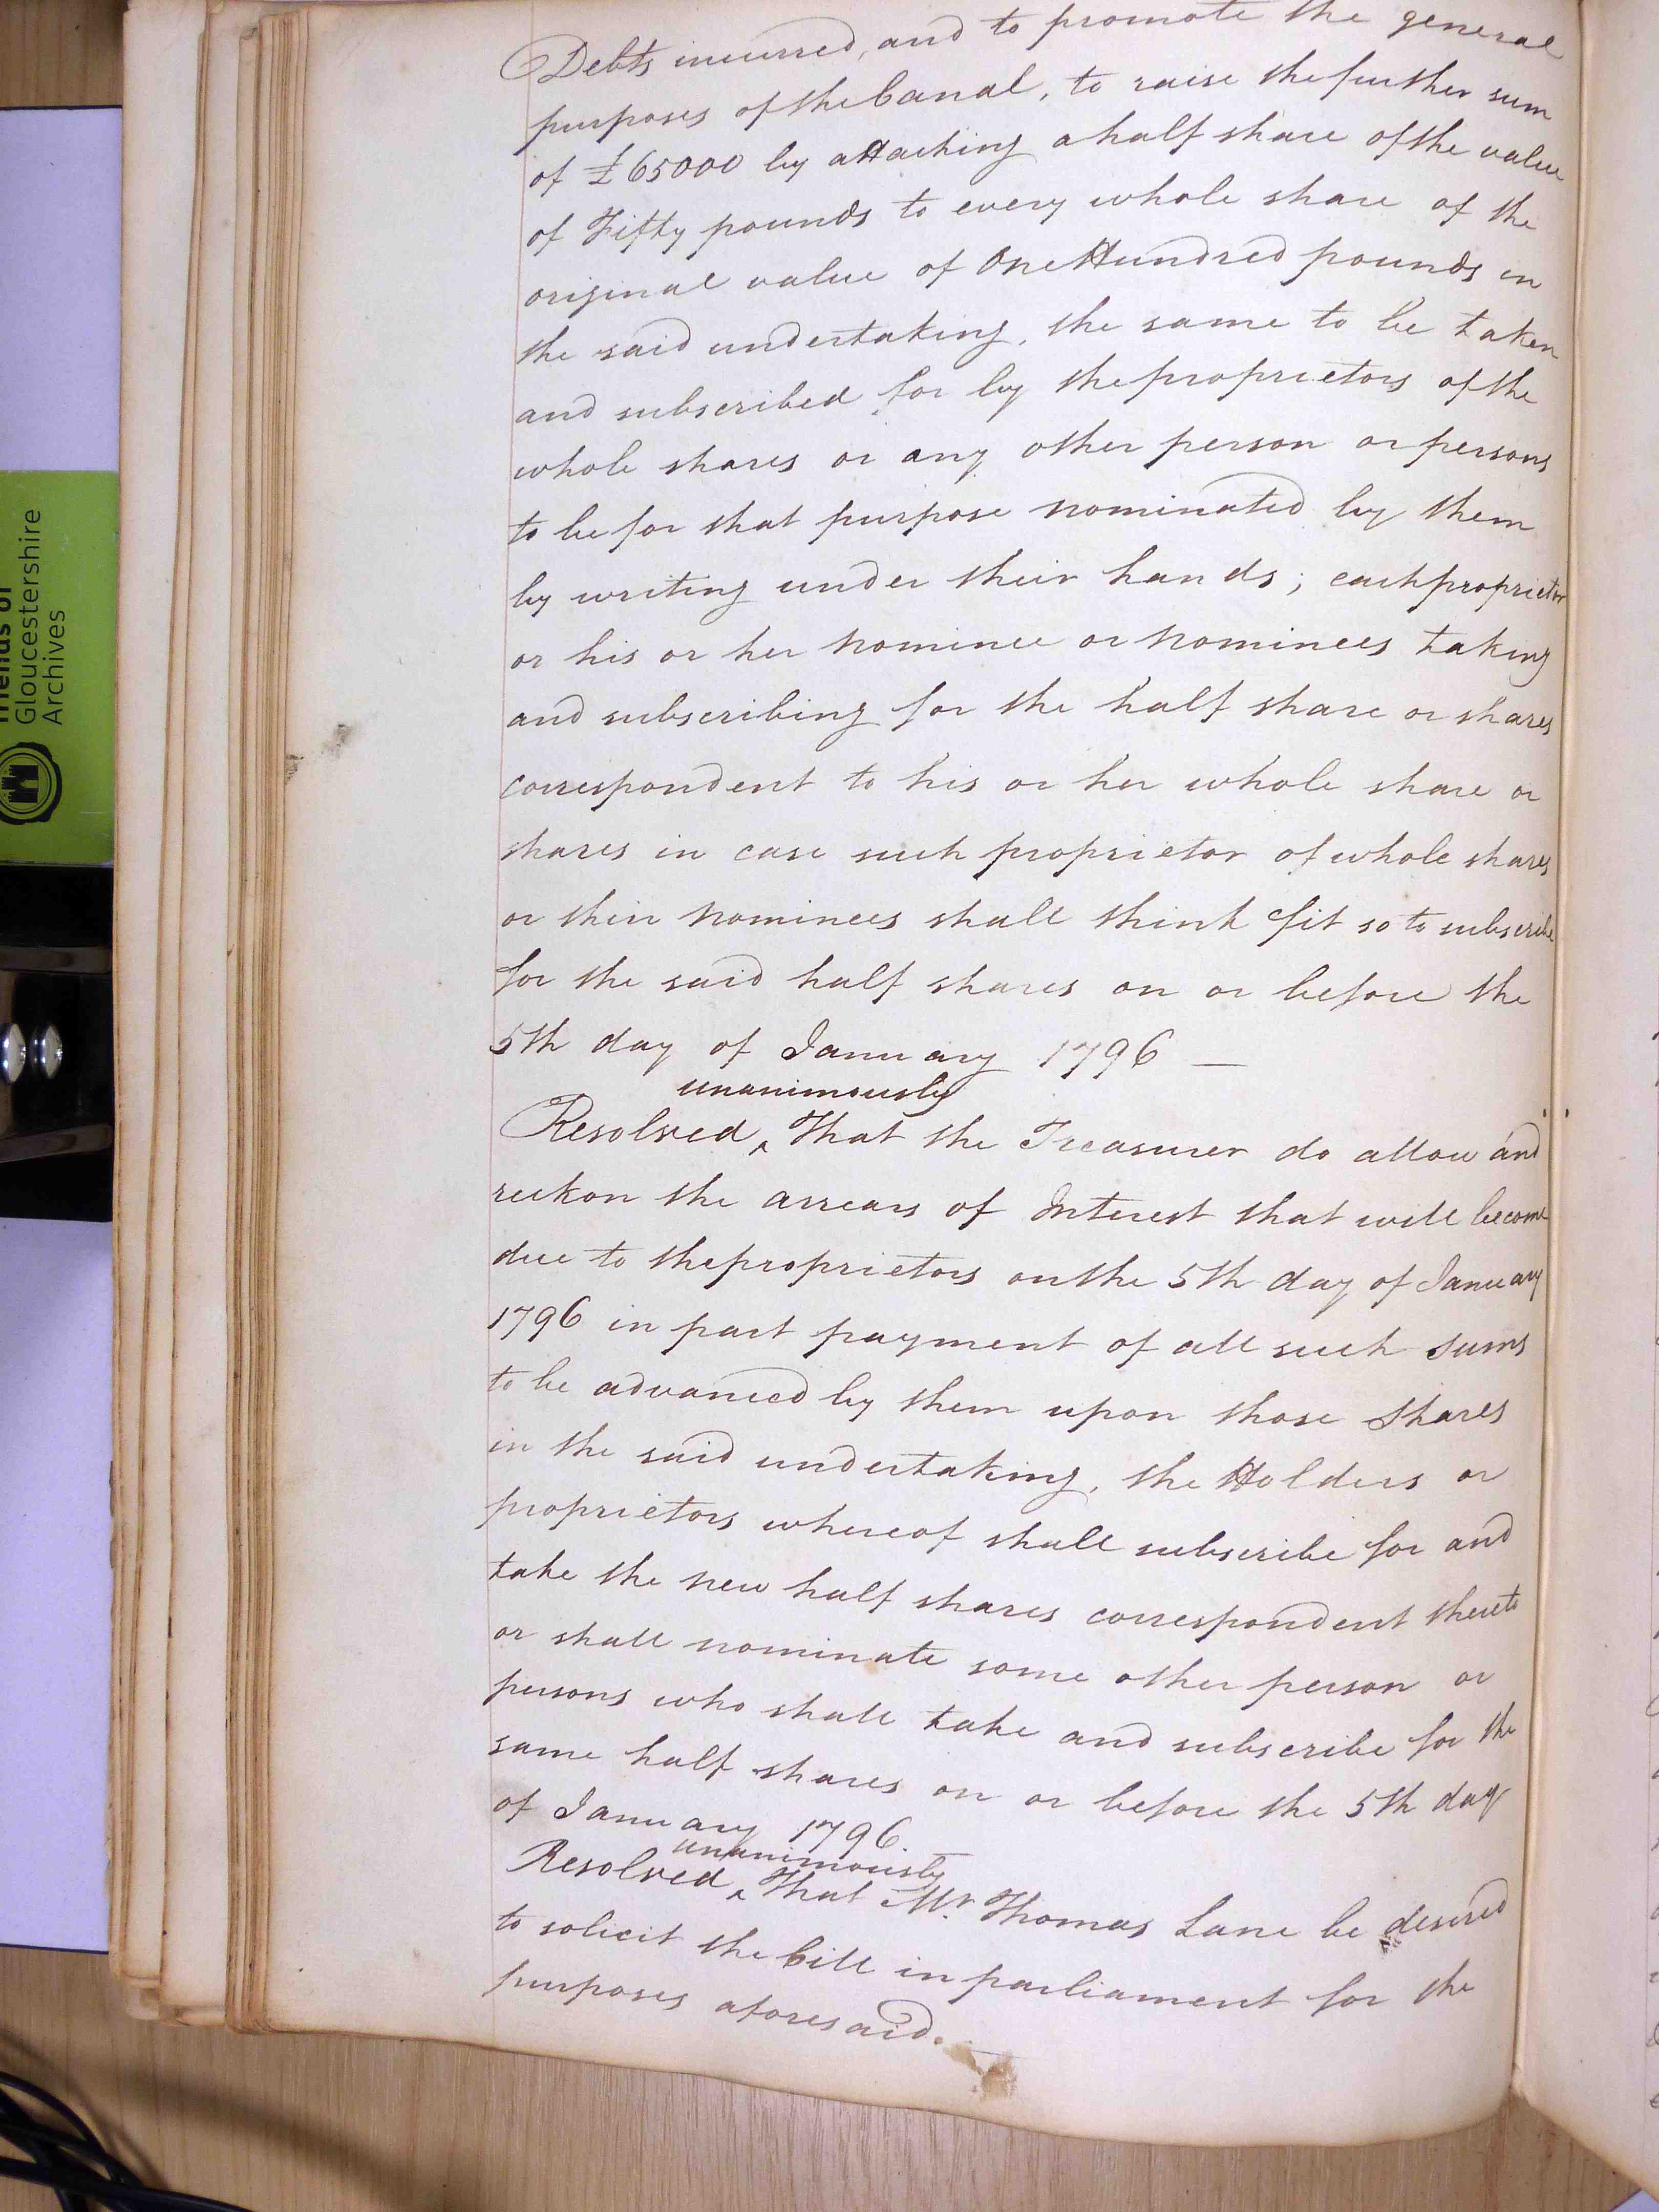 Debts incurred, and to promote the general
purposes of the Canal, to raise the further sum
of £65000 by attaching a half share of the value
of Fifty pounds to every whole share of the
original value of One Hundred pounds in
the said undertaking, the same to be taken
and subscribed for by the proprietors of the
whole shares or any other person or persons
to be for that purpose nominated by them
by writing under their hands; each proprietor
or his or her nominee or nominees taking
and subscribing for the half share or shares
correspondent to his or her whole share or
shares in case such proprietor of whole shares
or their nominees shall think fit so to subscribe
for the said half shares on or before the
5th day of January 1796 —
unanimously
Resolved ‸ That the Treasurer do allow and
reckon the arrears of Interest that will become
due to the proprietors on the 5th day of January
1796 in part payment of all such sums
to be advanced by them upon those shares
in the said undertaking, the Holders or
proprietors whereof shall subscribe for and
take the new half shares correspondent thereto
or shall nominate some other person or
persons who shall take and subscribe for the
same half shares on or before the 5th day
of January 1796.
unanimously
Resolved ‸ That Mr. Thomas Lane be desired
to solicit the bill in parliament for the
purposes aforesaid. —
Friends of
Gloucestershire
Archives